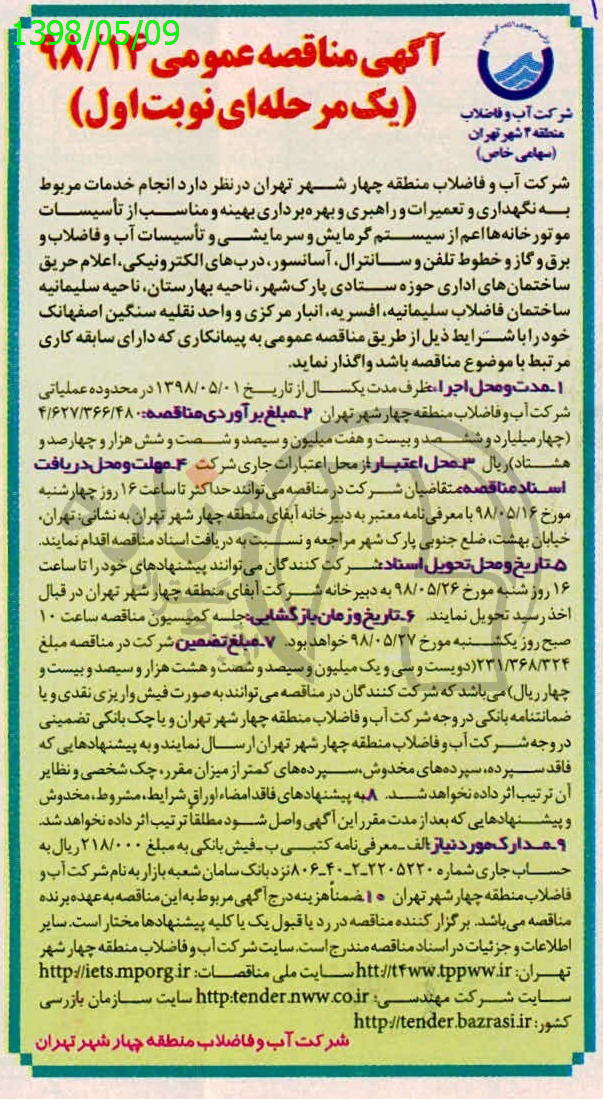 1398/05/09
آگهی مناقصه عمومی ۹۸/۱۴
(یک مرحله‌ای نوبت اول)
شرکت آب و فاضلاب
منطقه ۴ شهر تهران
(سهامی خاص)
شرکت آب و فاضلاب منطقه چهار شهر تهران درنظر دارد انجام خدمات مربوط
به نگهداری و تعمیرات و راهبری و بهره‌برداری بهینه و مناسب از تأسیسات
موتورخانه‌ها اعم از سیستم گرمایش و سرمایشی و تأسیسات آب و فاضلاب و
برق و گاز و خطوط تلفن و سانترال، آسانسور، درب‌های الکترونیکی، اعلام حریق
ساختمان‌های اداری حوزه ستادی پارک‌شهر، ناحیه بهارستان، ناحیه سلیمانیه
ساختمان فاضلاب سلیمانیه، افسریه، انبار مرکزی و واحد نقلیه سنگین اصفهانک
خود را با شرایط ذیل از طریق مناقصه عمومی به پیمانکاری که دارای سابقه کاری
مرتبط با موضوع مناقصه باشد واگذار نماید.
۱ـ مدت و محل اجرا: ظرف مدت یکسال از تاریخ ۱۳۹۸/۰۵/۰۱ در محدوده عملیاتی
شرکت آب و فاضلاب منطقه چهار شهر تهران ۲ـ مبلغ برآوردی مناقصه: ۴/۶۲۷/۳۶۶/۴۸۰
(چهار میلیارد و ششصد و بیست و هفت میلیون و سیصد و شصت و شش هزار و چهارصد و
هشتاد) ریال ۳ـ محل اعتبار: از محل اعتبارات جاری شرکت ۴ـ مهلت و محل دریافت
اسناد مناقصه: متقاضیان شرکت در مناقصه می‌توانند حداکثر تا ساعت ۱۶ روز چهارشنبه
مورخ ۹۸/۰۵/۱۶ با معرفی‌نامه معتبر به دبیرخانه آبفای منطقه چهار شهر تهران به نشانی: تهران،
خیابان بهشت، ضلع جنوبی پارک شهر مراجعه و نسبت به دریافت اسناد مناقصه اقدام نمایند.
۵ـ تاریخ و محل تحویل اسناد: شرکت کنندگان می‌توانند پیشنهادهای خود را تا ساعت
۱۶ روز شنبه مورخ ۹۸/۰۵/۲۶ به دبیرخانه شرکت آبفای منطقه چهار شهر تهران در قبال
اخذ رسید تحویل نمایند. ۶ـ تاریخ و زمان بازگشایی: جلسه کمیسیون مناقصه ساعت ۱۰
صبح روز یکشنبه مورخ ۹۸/۰۵/۲۷ خواهد بود. ۷ـ مبلغ تضمین شرکت در مناقصه مبلغ
۲۳۱/۳۶۸/۳۲۴ (دویست و سی و یک میلیون و سیصد و شصت و هشت هزار و سیصد و بیست و
چهار ریال) می‌باشد که شرکت کنندگان در مناقصه می‌توانند به صورت فیش واریزی نقدی و یا
ضمانتنامه بانکی در وجه شرکت آب و فاضلاب منطقه چهار شهر تهران و یا چک بانکی تضمینی
در وجه شرکت آب و فاضلاب منطقه چهار شهر تهران ارسال نمایند و به پیشنهادهایی که
فاقد سپرده، سپرده‌های مخدوش، سپرده‌های کمتر از میزان مقرر، چک شخصی و نظایر
آن ترتیب اثر داده نخواهد شد. ۸ـ به پیشنهادهای فاقد امضاء اوراق شرایط، مشروط، مخدوش
و پیشنهادهایی که بعد از مدت مقرر این آگهی واصل شود مطلقاً ترتیب اثر داده نخواهد شد.
۹ـ مدارک مورد نیاز: الف ـ معرفی‌نامه کتبی ب ـ فیش بانکی به مبلغ ۲۱۸/۰۰۰ ریال به
حساب جاری شماره ۲۲۰۵۲۲۰ـ۲ـ۴۰ـ۸۰۶ نزد بانک سامان شعبه بازار به نام شرکت آب و
فاضلاب منطقه چهار شهر تهران ۱۰ـ ضمناً هزینه درج آگهی مربوط به این مناقصه به عهده برنده
مناقصه می‌باشد. برگزار کننده مناقصه در رد یا قبول یک یا کلیه پیشنهادها مختار است. سایر
اطلاعات و جزئیات در اسناد مناقصه مندرج است. سایت شرکت آب و فاضلاب منطقه چهار شهر
تهران: htt://t4ww.tppww.ir سایت ملی مناقصات: http://iets.mporg.ir
سایت شرکت مهندسی: http:tender.nww.co.ir سایت سازمان بازرسی
کشور: http://tender.bazrasi.ir
شرکت آب و فاضلاب منطقه چهار شهر تهران